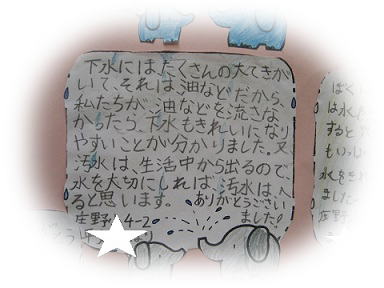 下水には、たくさんの大てきが
いて、それは、油などだから、
私たちが、油などを流さな
かったら、下水もきれいになり
やすいことが分かりました。又
汚水は、生活中から出るので、
水を大切にしれば、汚水は、へ
ると思います。 ありがとうござい
ました!!
庄野 4-2
ばく
は水
する
もいっ
水をき
ました
庄野